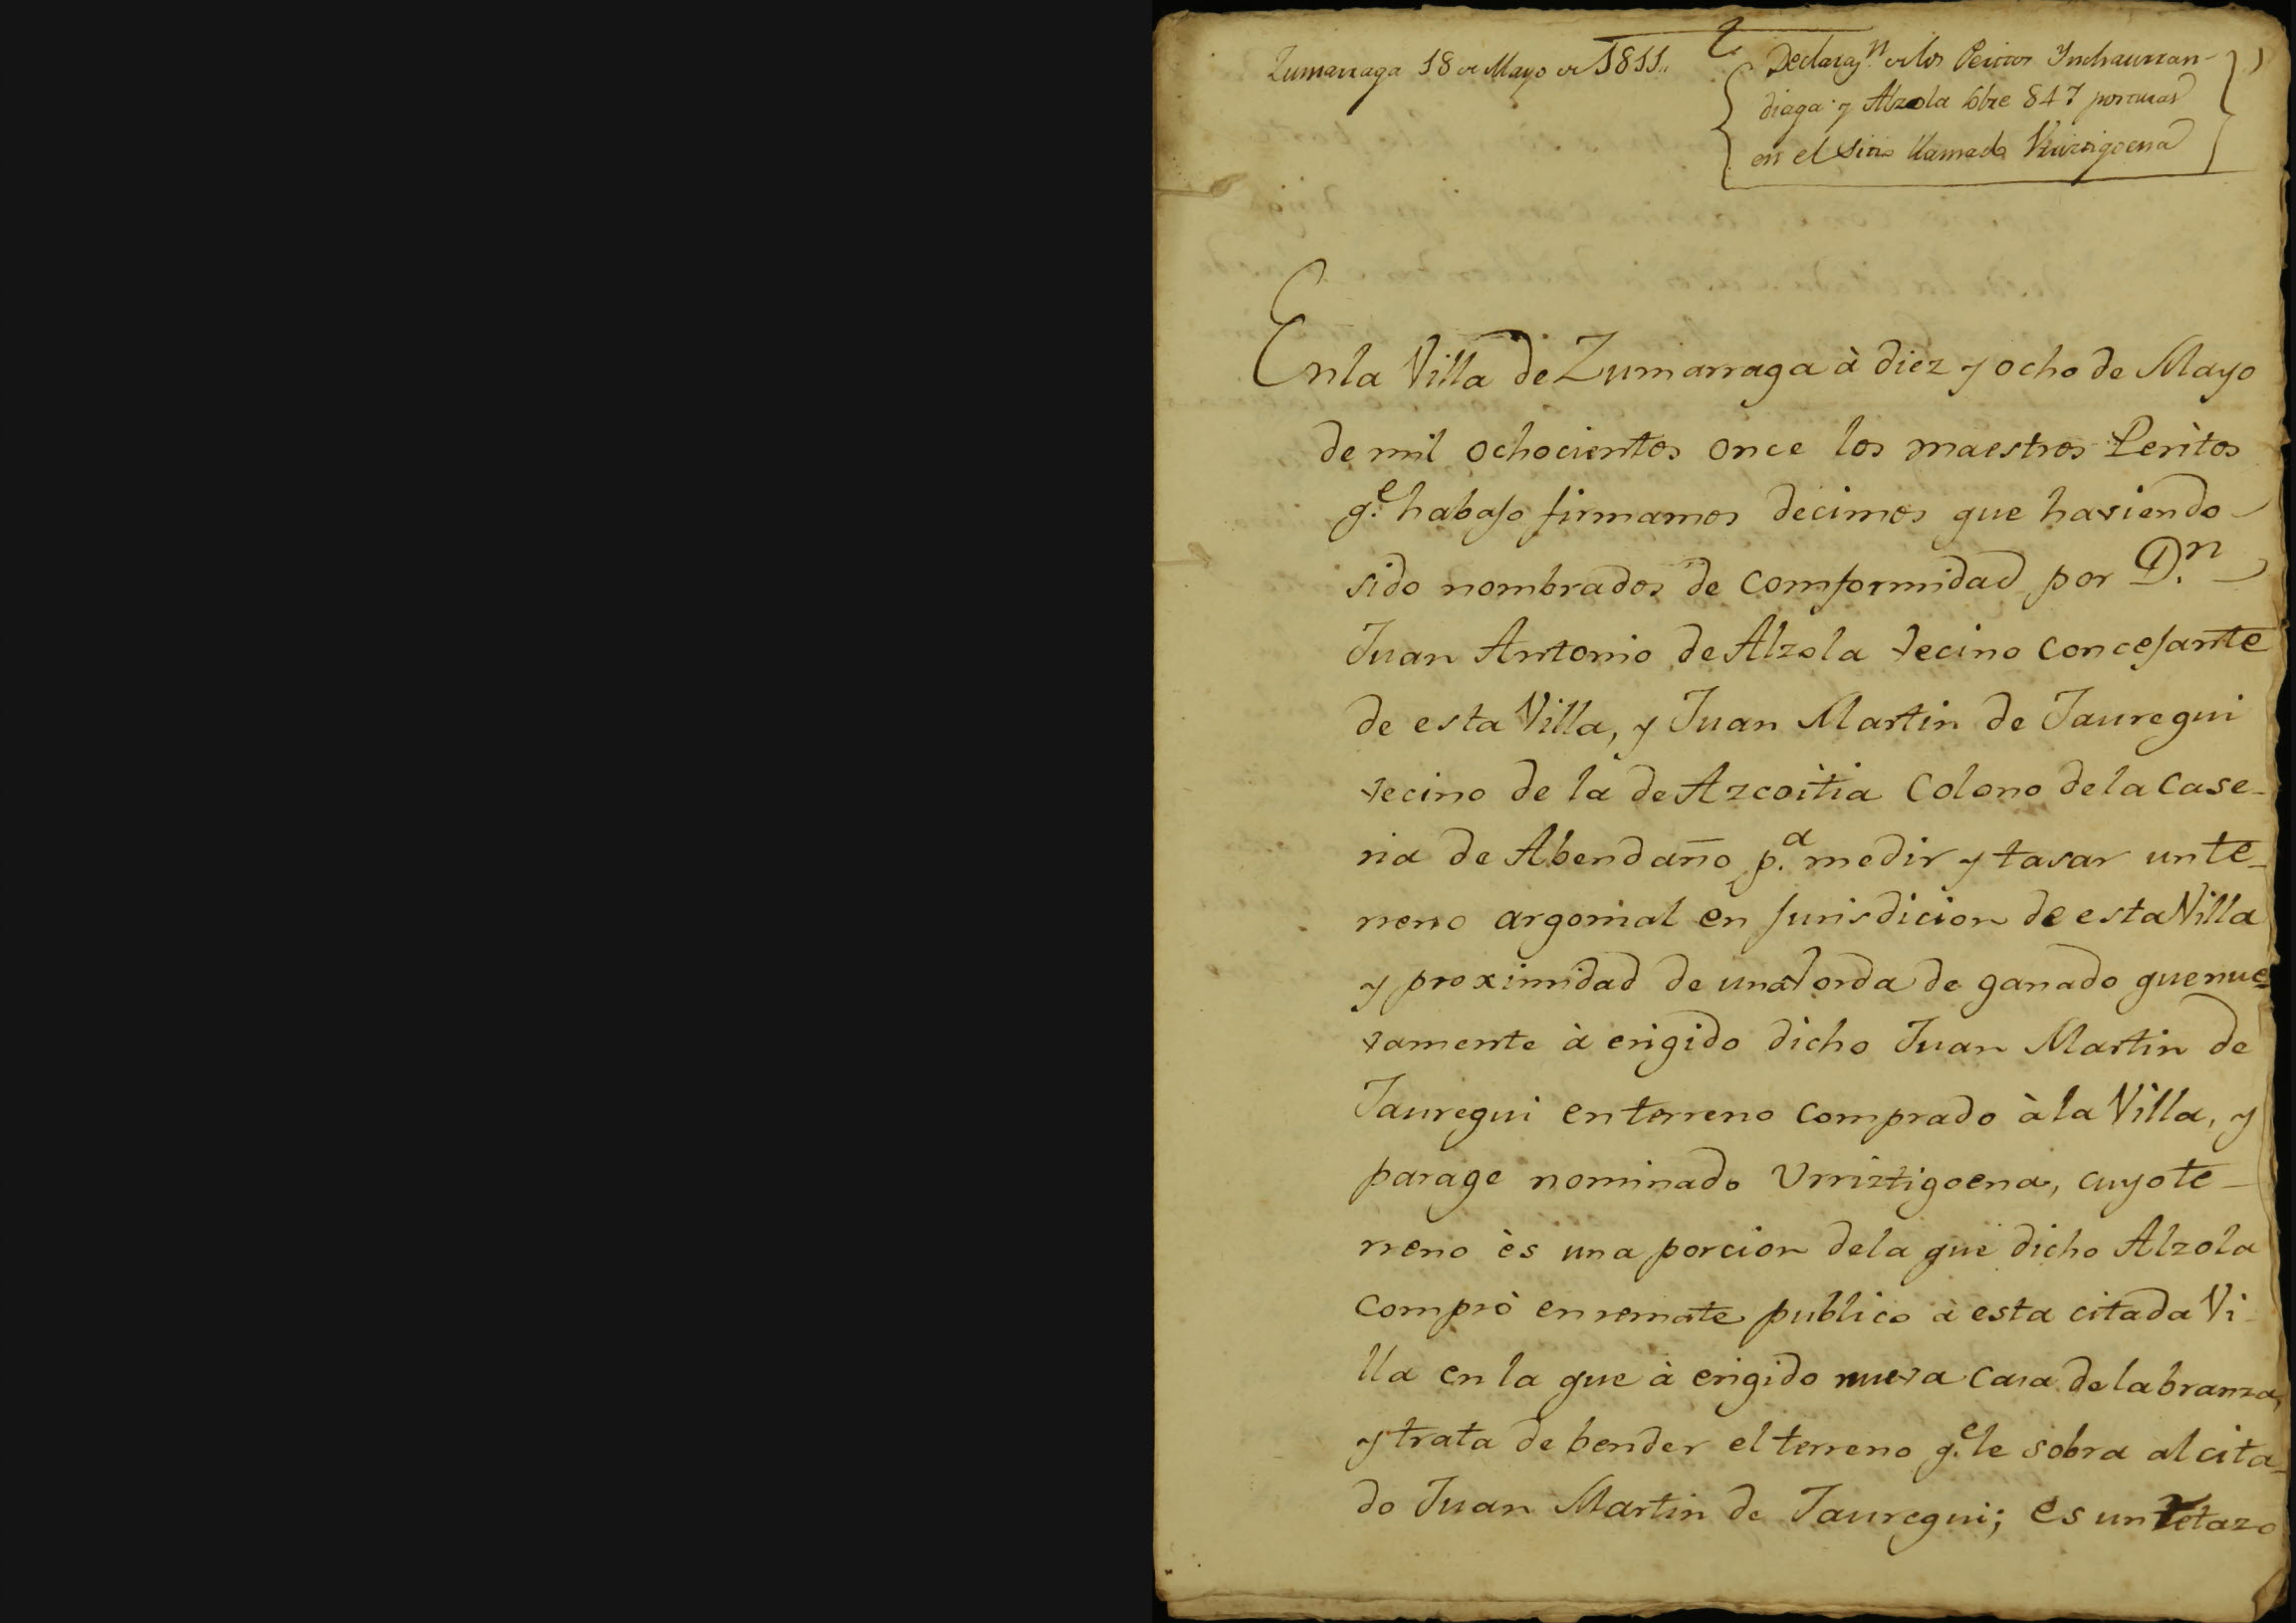 Zumarraga 18 de Mayo de 1811..
Declaraz.n de los Peritos Ynchaurran-
diaga y Alzola sbre 847 posturas
en el sitio llamado Vrriztigoena
En la Villa de Zumarraga à diez y ocho de Mayo
de mil ochocientos once los maestros Peritos
q.e habajo firmamos decimos que haviendo
sido nombrados de comformidad por D.n
Juan Antonio de Alzola vecino concejante
de esta Villa, y Juan Martin de Jauregui
vecino de la de Azcoitia Colono de la Case-
ria de Abendaño p.a medir y tasar un te-
rreno argomal en Jurisdicion de esta Villa
y proximidad de una borda de ganado que nue-
vamente à erigido dicho Juan Martin de
Jauregui en terreno comprado à la Villa, y
parage nominado Vrriztigoena, cuyo te-
rreno ès una porcion de la que dicho Alzola
comprò en remate publico à esta citada Vi-
lla en la que à erigido nueva casa de labranza,
y trata de bender el terreno q.e le sobra al cita-
do Juan Martin de Jauregui; es un retazo